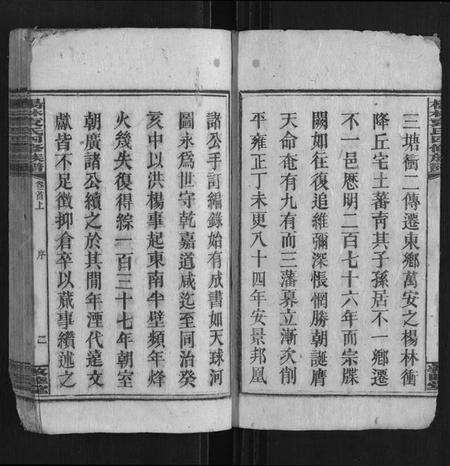 三塘衝二傳遷東鄉萬安之楊林衝
降丘宅土蕃育其子孫居不一鄉遷
不一邑厯明二百七十六年而宗牒
闕如往復追維彌深悵惘勝朝誕膺
天命奄有九有而三藩募立漸次削
平雍正丁未更八十四年安景邦凰
諸公手訂編錄始有成書如天球河
圖永爲世守乾嘉道咸迄至同治癸
亥中以洪楊事起東南半壁頻年烽
火幾失復得綜一百三十七年朝室
朝廣諸公續之於其間年湮代遠文
獻皆不足徵抑倉卒以蕆事續述之
卷首上
序
二